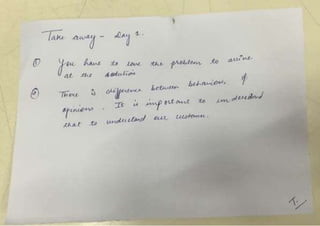 Take away - Day 1.
① You have to love the problem to arrive
at the solution
② There is difference between behaviour &
opinions. It is important to understand
that to understand our customer.
T.